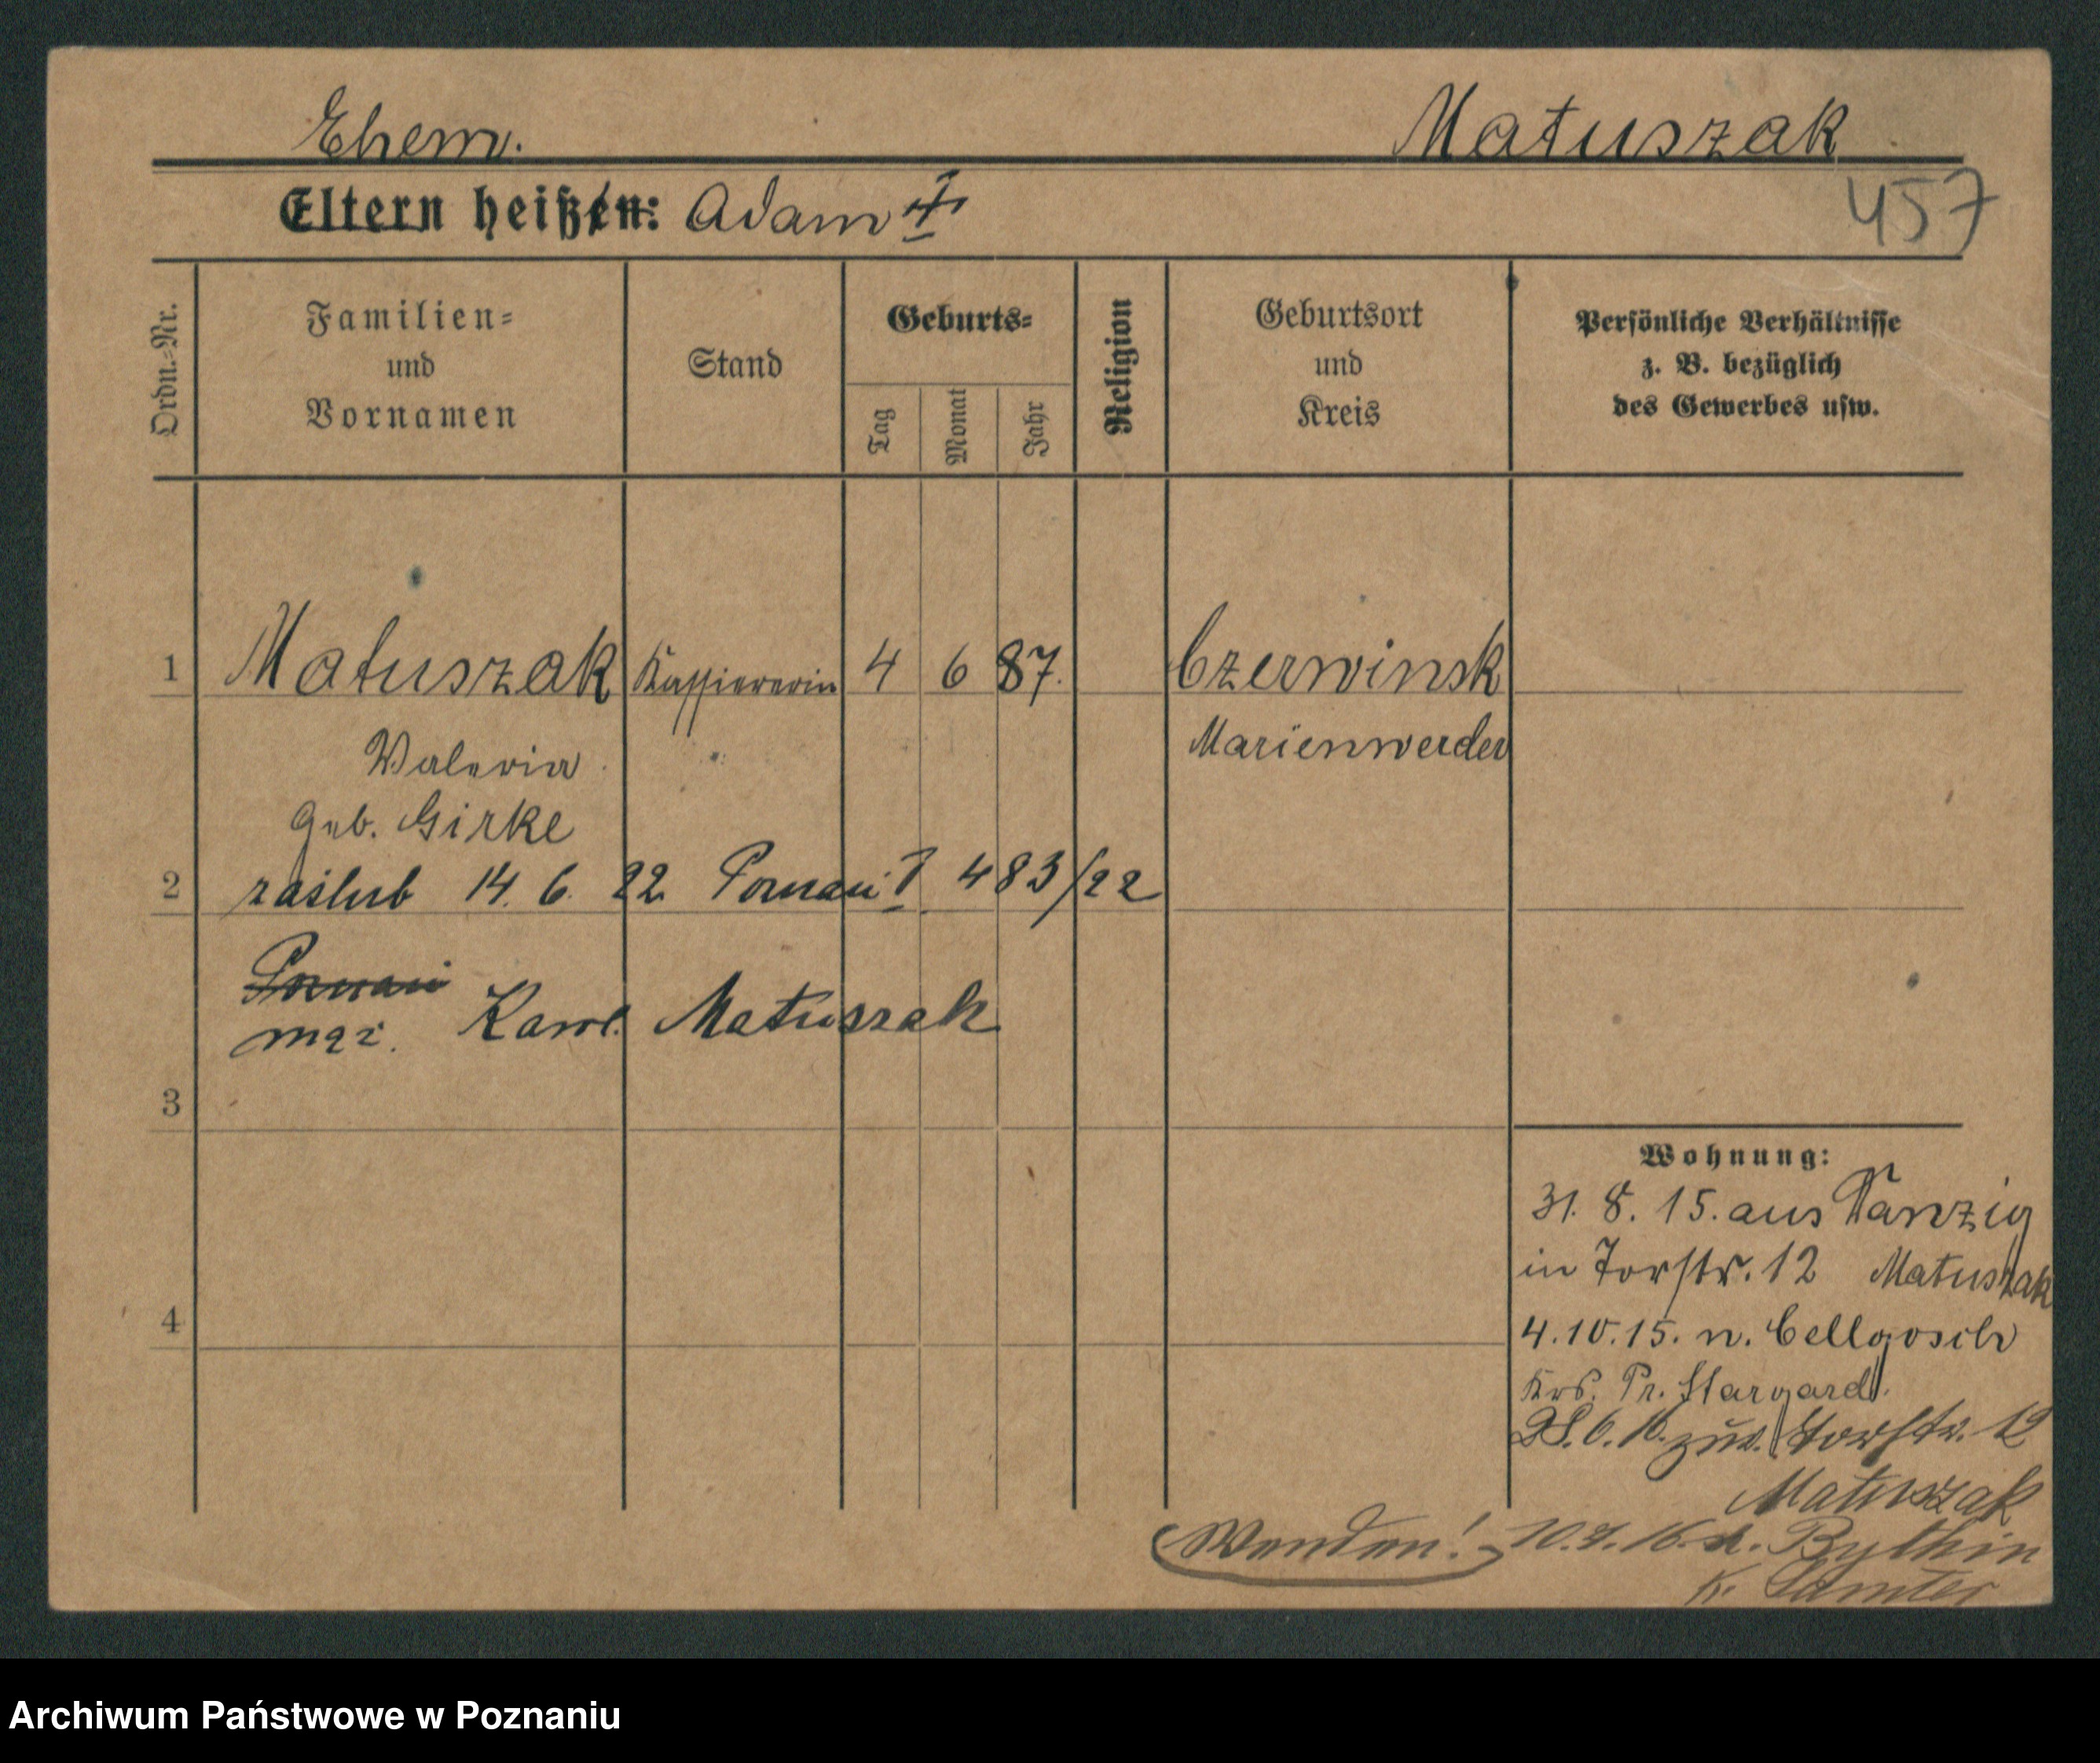 Ehem. Matuszak
Eltern heißen: Adam ‡
457
Ordn.-Nr.
Familien-
und
Vornamen
Stand
Geburts-
Tag
Monat
Jahr
Religion
Geburtsort
und
Kreis
Persönliche Verhältnisse
z. B. bezüglich
des Gewerbes usw.
1 Matuszak Kassiererin 4 6 87. Czerwinsk
Waleria Marienwerder
geb. Girke
2 zaślub 14. 6. 22 Poznań I 483/22
Poznań
mąż. Karol Matuszak
3
Wohnung:
31. 8. 15. aus Danzig
in Torstr. 12 Matuszak
4
4.10.15. n. Cellgosch
Krs. Pr. Stargard.
28.6.16. zur. Torstr. 12
Matuszak
Wenden! 10.7.16. n. Bythin
K. Samter
Archiwum Państwowe w Poznaniu